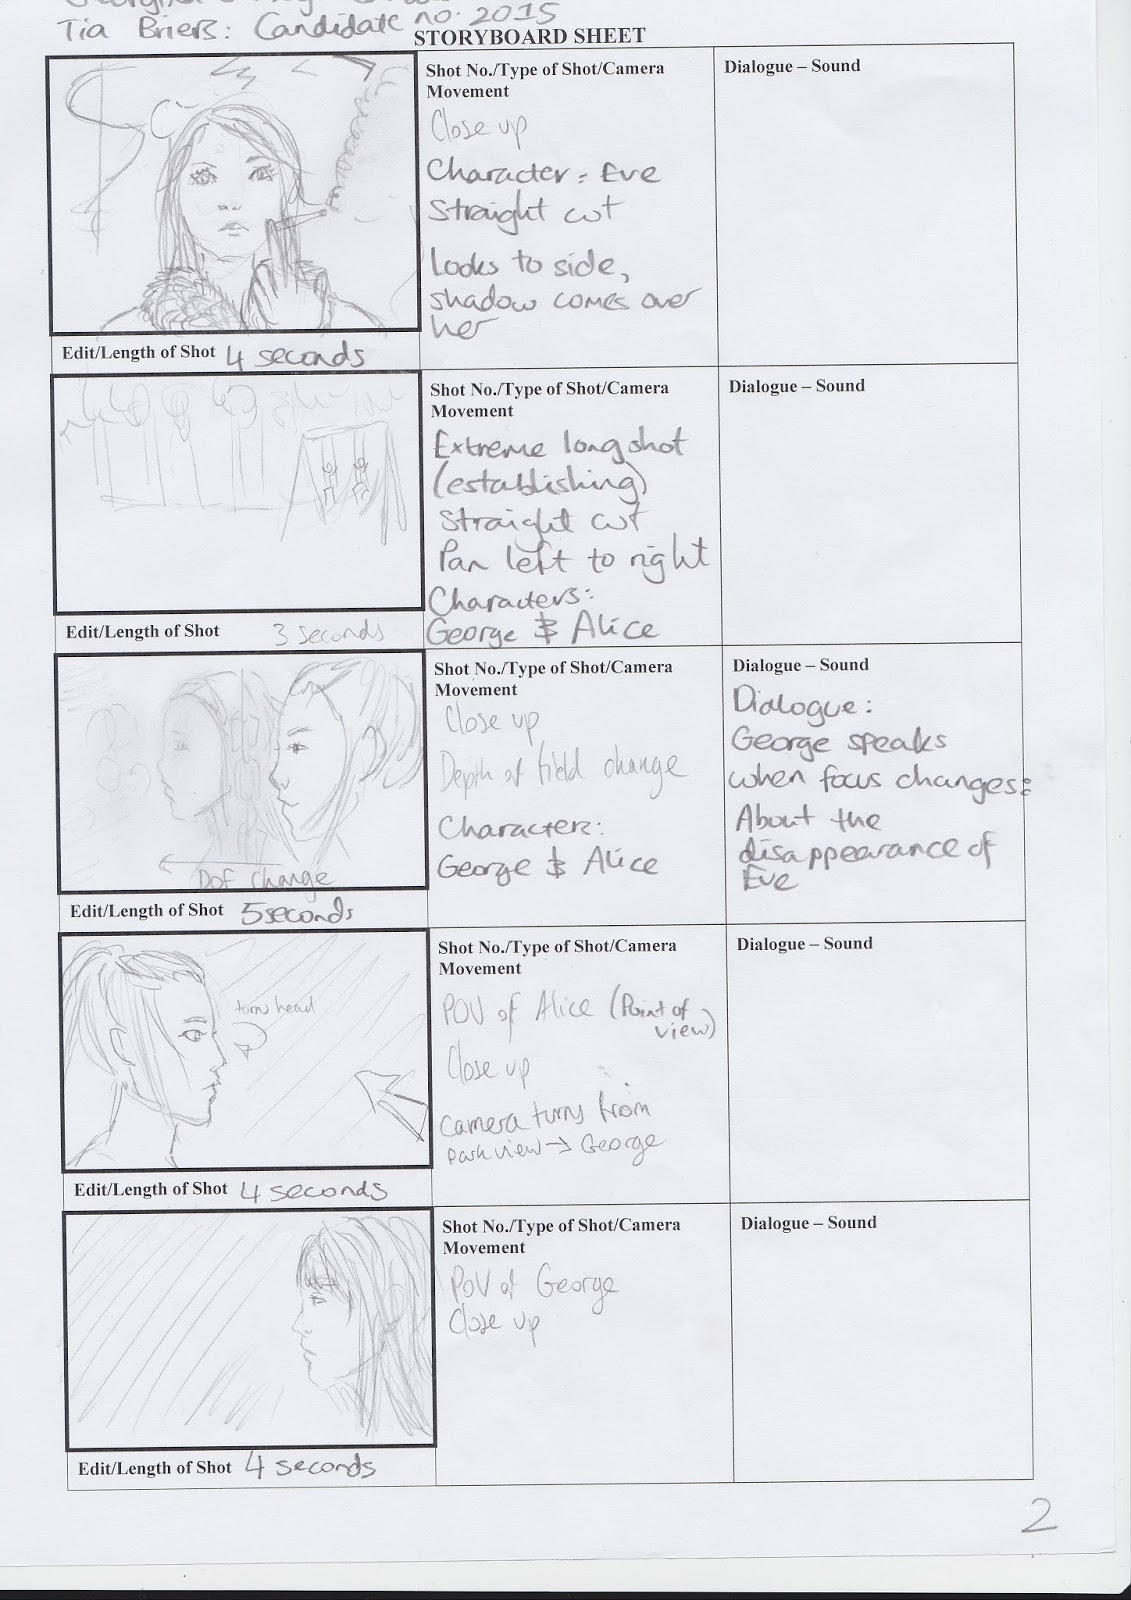 Tia Briers: Candidate no. 2015
STORYBOARD SHEET
Shot No./Type of Shot/Camera
Movement
Close up
Character: Eve
Straight cut
Looks to side,
shadow comes over
her
Dialogue – Sound
Edit/Length of Shot 4 seconds
Shot No./Type of Shot/Camera
Movement
Extreme long shot
(establishing)
Straight cut
Pan left to right
Characters:
George & Alice
Dialogue – Sound
Edit/Length of Shot 3 seconds
DoF change
Shot No./Type of Shot/Camera
Movement
Close up
Depth of field change
Character:
George & Alice
Dialogue – Sound
Dialogue:
George speaks
when focus changes:
About the
disappearance of
Eve
Edit/Length of Shot 5 seconds
turns head
Shot No./Type of Shot/Camera
Movement
POV of Alice (Point of
view)
Close up
camera turns from
park view → George
Dialogue – Sound
Edit/Length of Shot 4 seconds
Shot No./Type of Shot/Camera
Movement
POV of George
Close up
Dialogue – Sound
Edit/Length of Shot 4 seconds
2